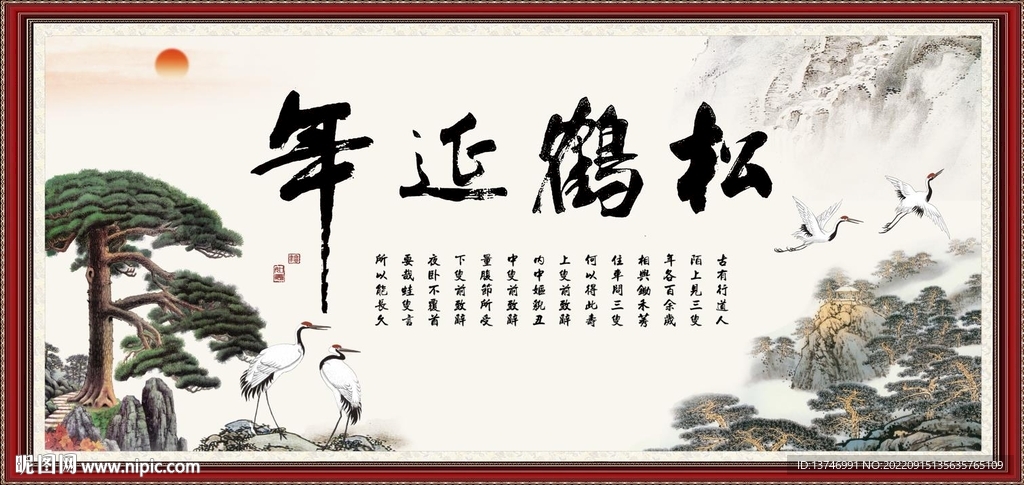 松鶴延年
古有行道人
陌上見三叟
年各百余歲
相與鋤禾莠
住車問三叟
何以得此壽
上叟前致辭
内中嫗貌丑
中叟前致辭
量腹節所受
下叟前致辭
夜卧不覆首
要哉蛙叟言
所以能長久
昵图网 www.nipic.com
ID:13746991 NO:20220915135635765109